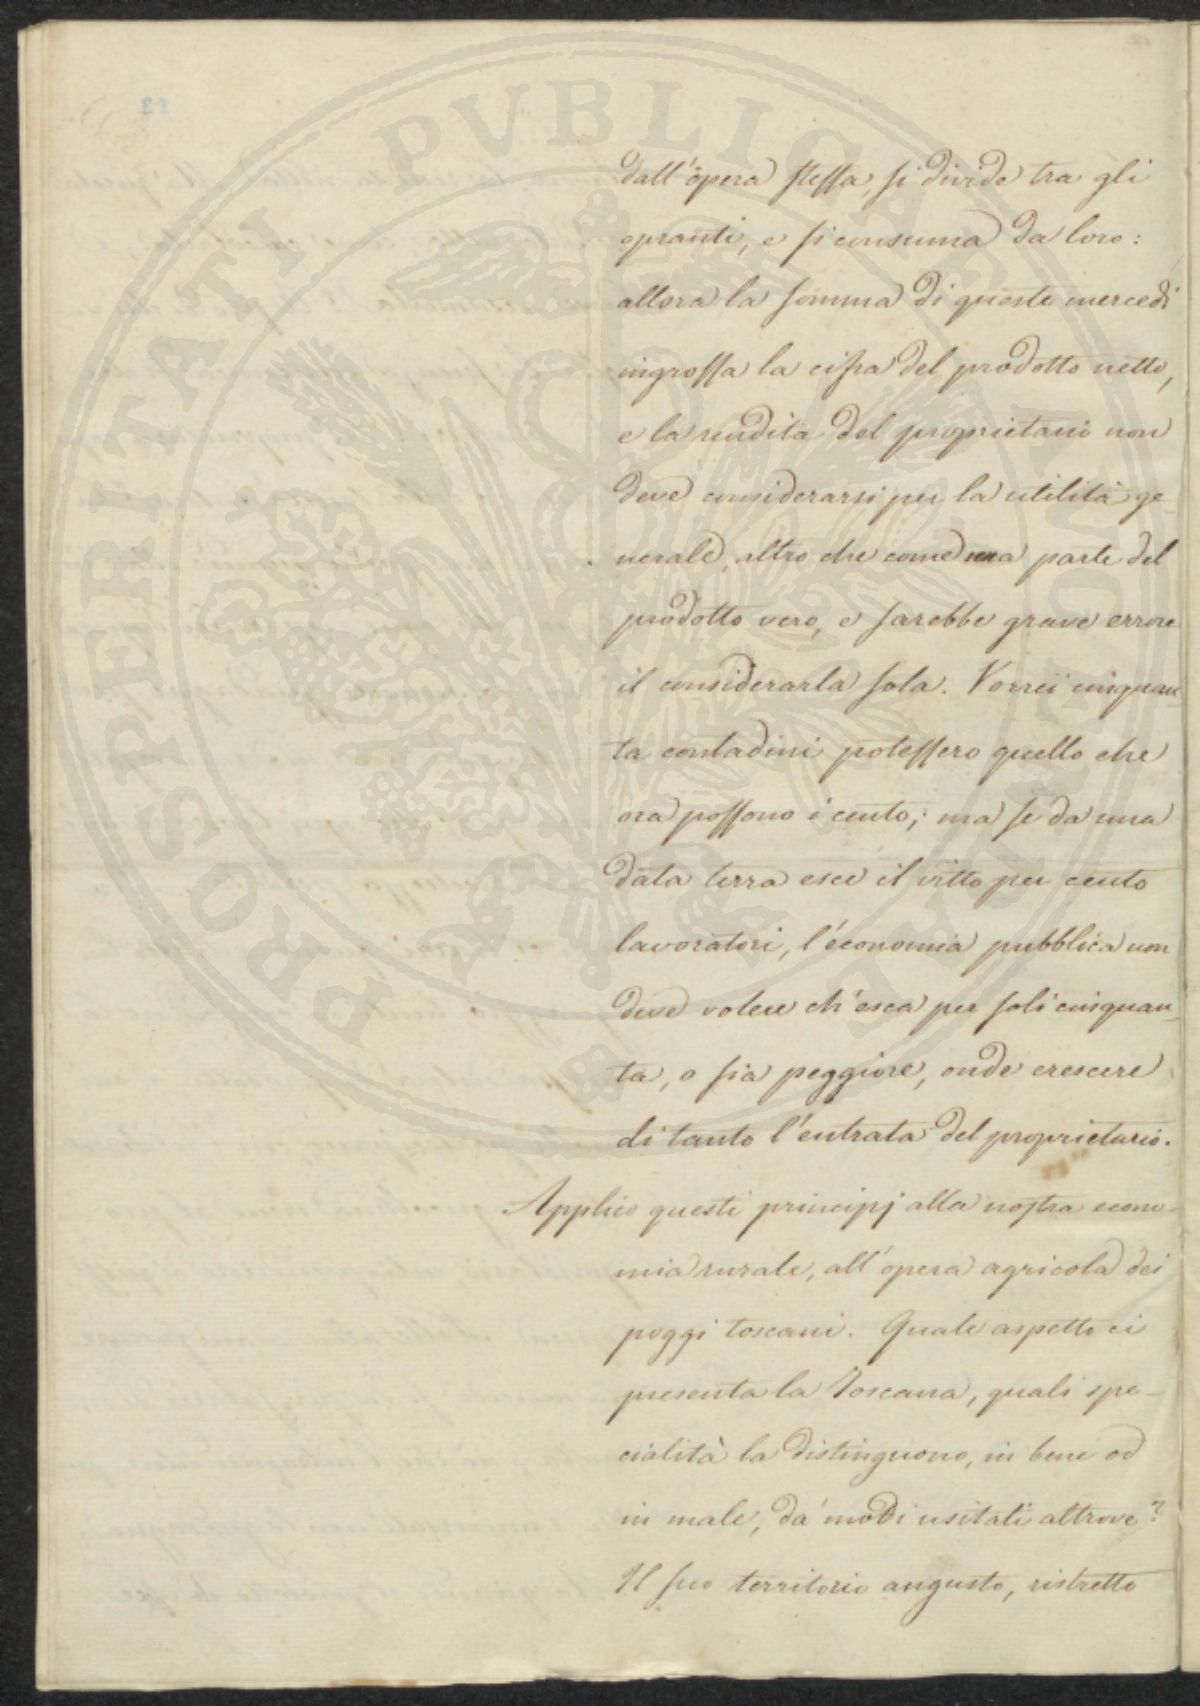 dall'opera stessa, si divide tra gli
opranti, e si consuma da loro:
allora la somma di queste mercedi
ingrossa la cifra del prodotto netto,
e la rendita del proprietario non
deve considerarsi per la utilità ge-
nerale, altro che come una parte del
prodotto vero, e sarebbe grave errore
il considerarla sola. Vorrei cinquan-
ta contadini potessero quello che
ora possono i cento; ma se da una
data terra esce il vitto per cento
lavoratori, l'economia pubblica non
deve volere ch'esca per soli cinquan-
ta, o sia peggiore, onde crescere
di tanto l'entrata del proprietario.
Applico questi principj alla nostra econo-
mia rurale, all'opera agricola dei
poggi toscani. Quale aspetto ci
presenta la Toscana, quali spe-
cialità la distinguono, in bene od
in male, da' modi usitati altrove?
Il suo territorio angusto, ristretto
PROSPERITATI PVBLICAE AVGENDAE